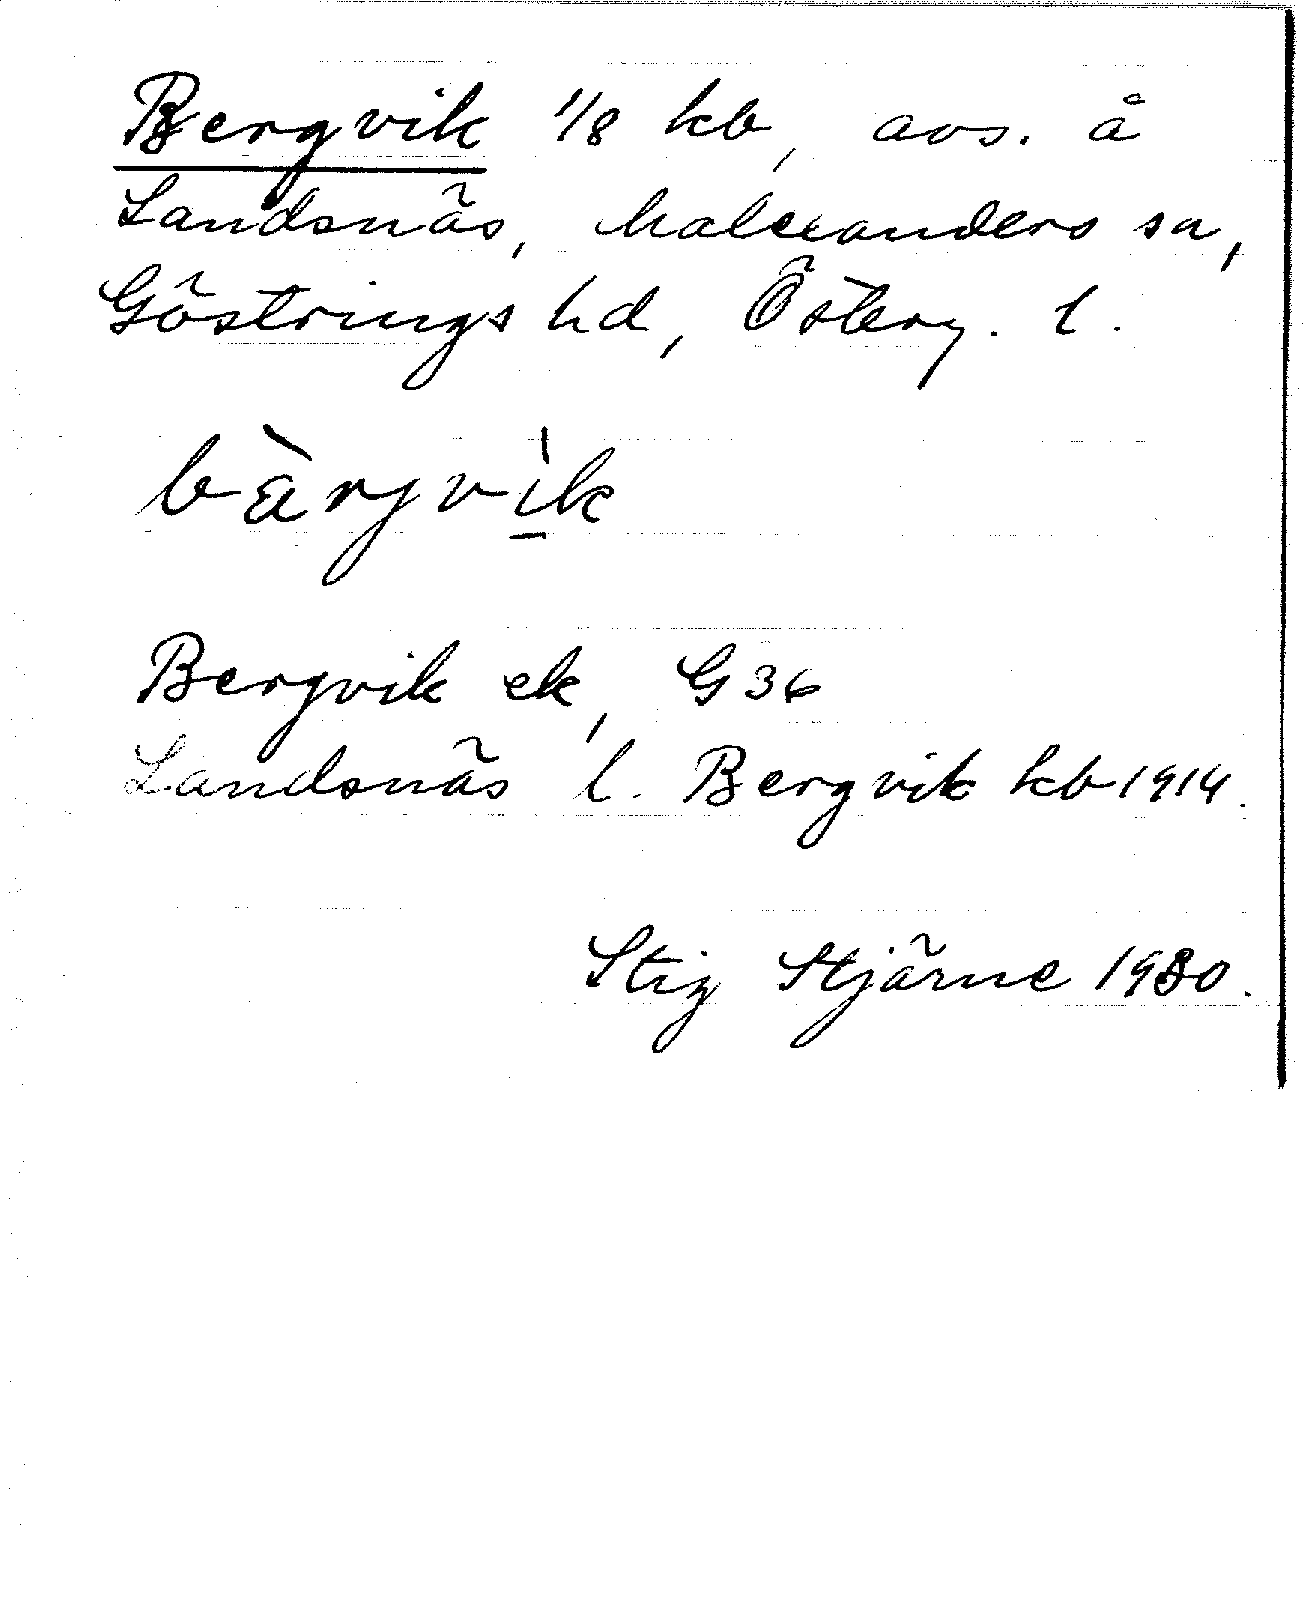 Bergvik 1/8 kb, avs. å
Landsnäs, Malexanders sn,
Göstrings hd, Österg. l.
bàrjvìk
Bergvik ek, G 36
Landsnäs l. Bergvik kb 1914.
Stig Stjärne 1930.